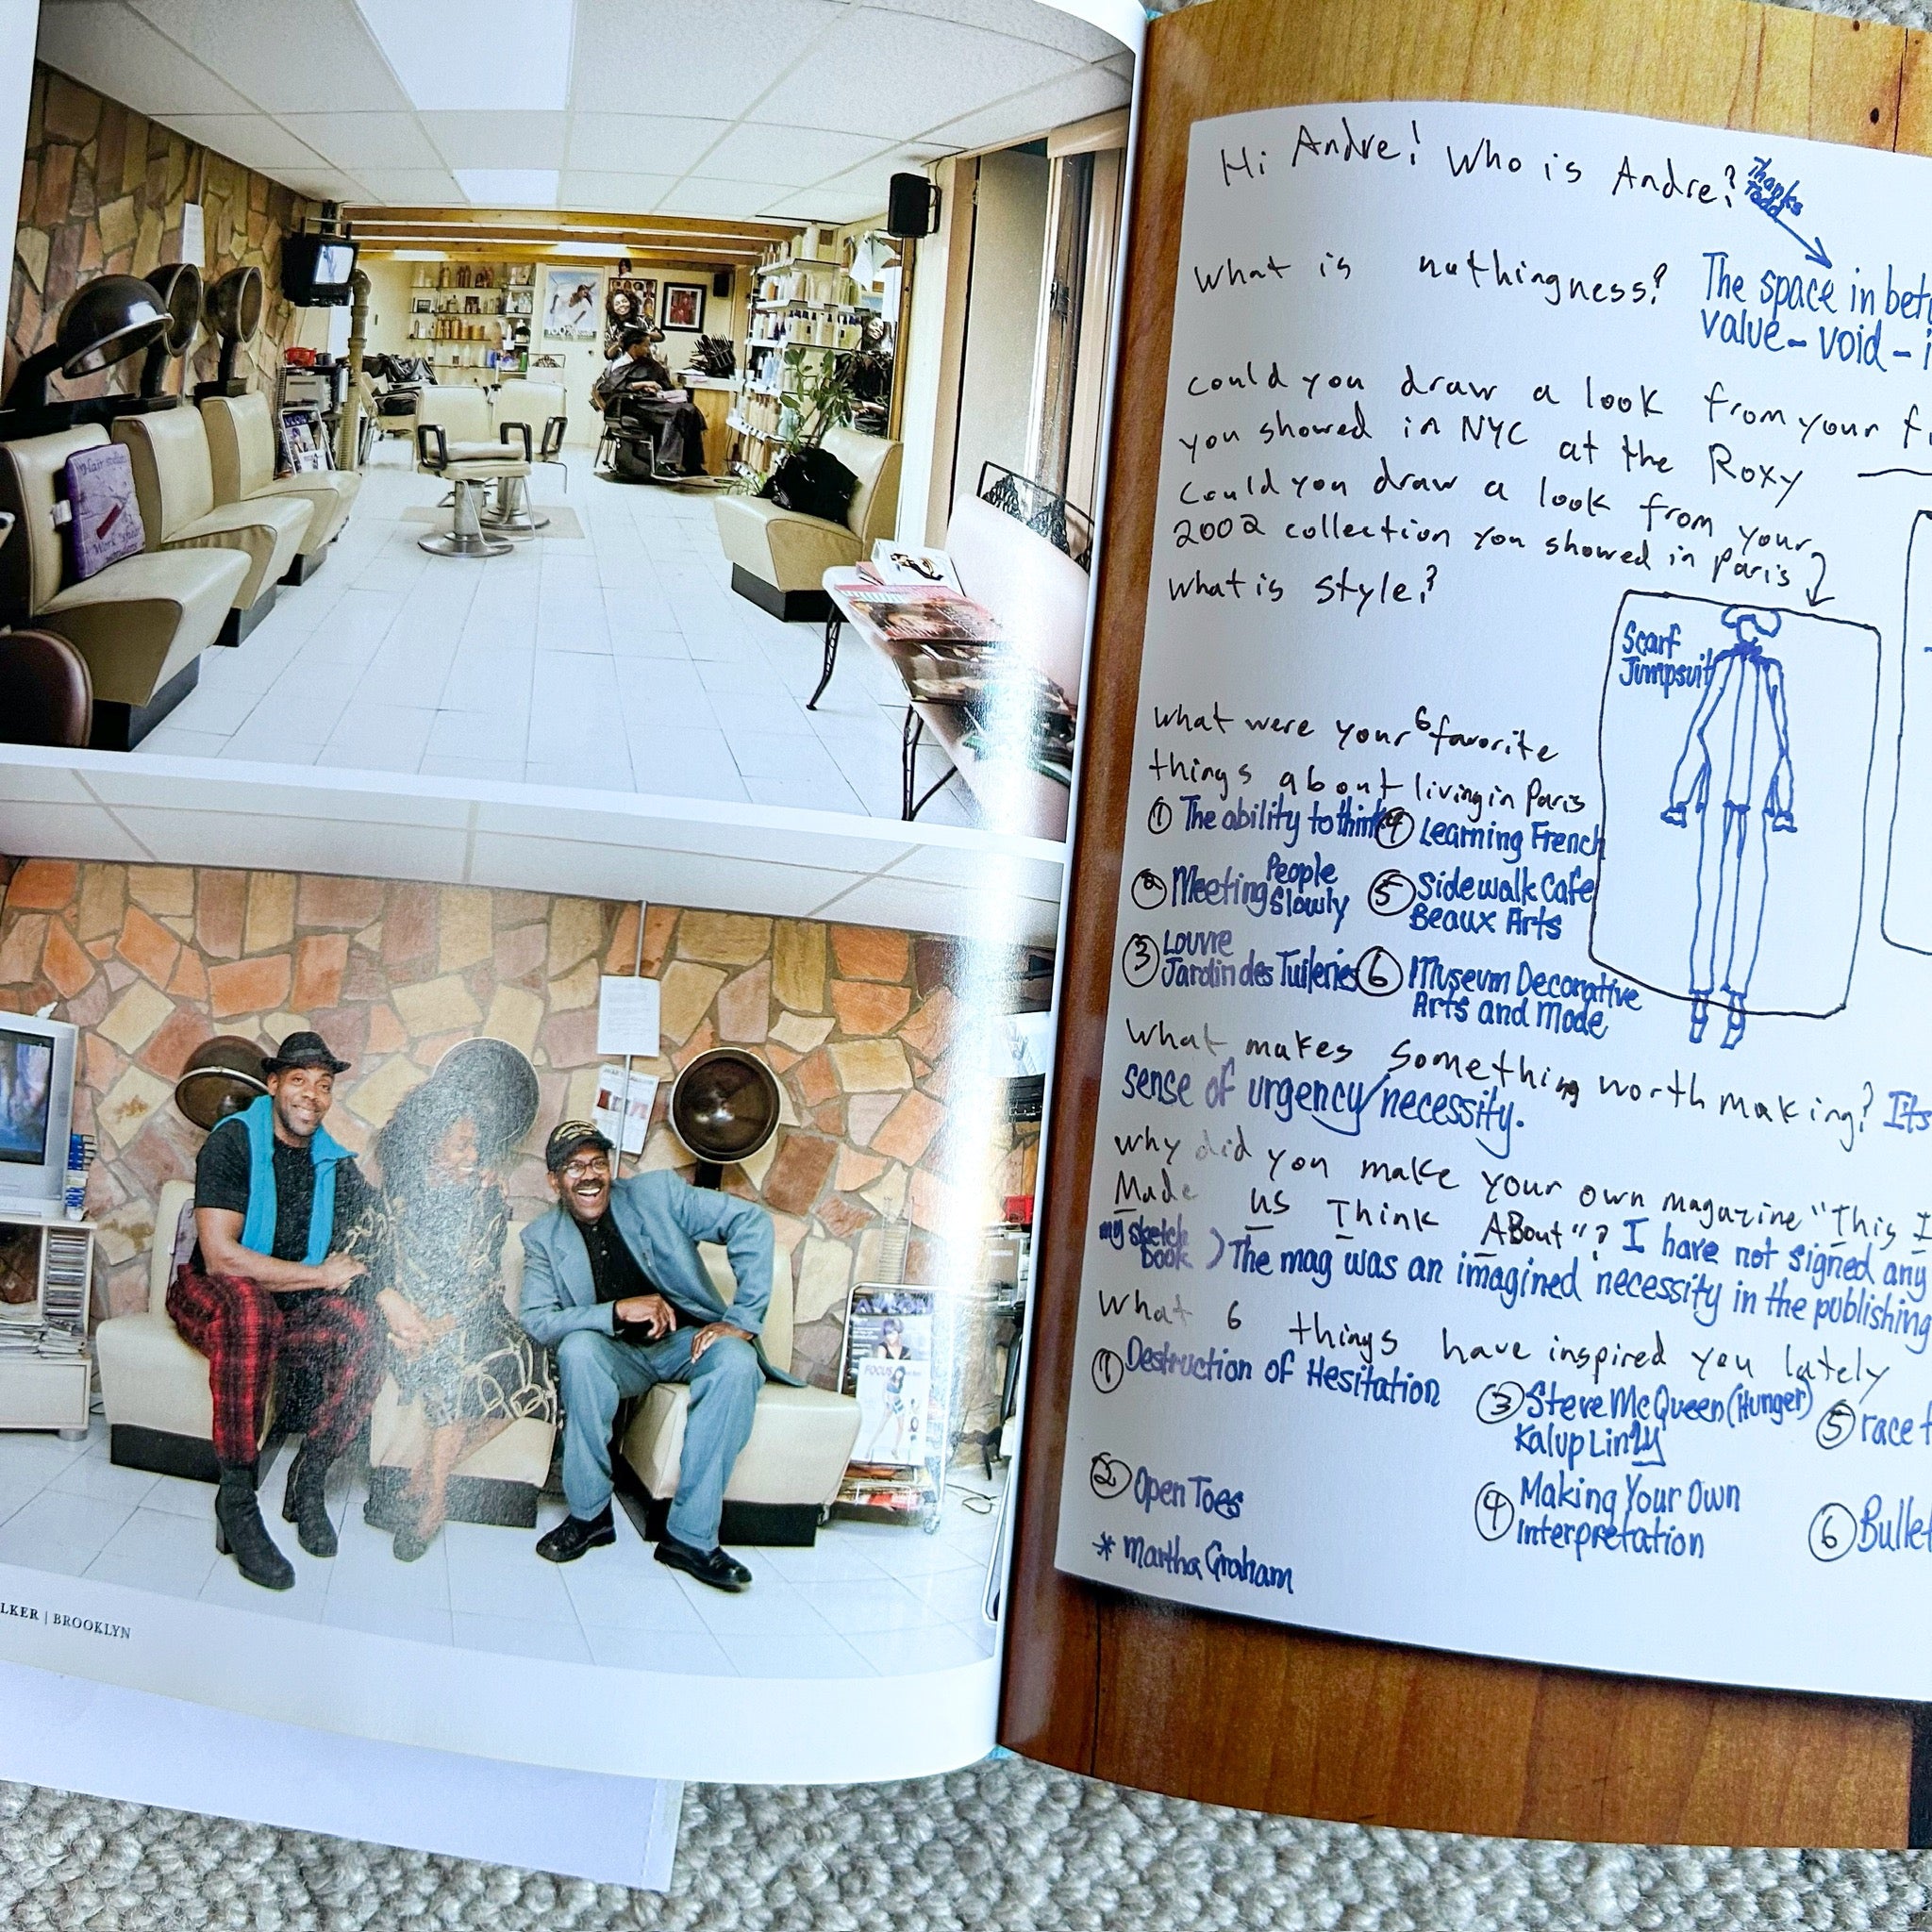 Hair stylin
Work shed
FOCUS
LKER | BROOKLYN
Hi Andre! Who is Andre?
Thanks
Todd
What is nothingness? The space in bet
value – void – i
could you draw a look from your f
you showed in NYC at the Roxy
Could you draw a look from your
2002 collection you showed in paris
what is style?
Scarf
Jumpsuit
what were your 6 favorite
things about living in Paris
① The ability to think ④ Learning French
② Meeting People Slowly ⑤ Sidewalk Cafe
Beaux Arts
③ Louvre
Jardin des Tuileries ⑥ Museum Decorative
Arts and Mode
What makes something worth making? Its
sense of urgency/necessity.
why did you make your own magazine "This I
Made us Think ABout"? I have not signed any
my sketch
book ) The mag was an imagined necessity in the publishing
What 6 things have inspired you lately
① Destruction of Hesitation
③ Steve McQueen (Hunger)
Kalup Linzy
⑤ race t
② Open Toes
④ Making Your Own
Interpretation
⑥ Bullet
* Martha Graham